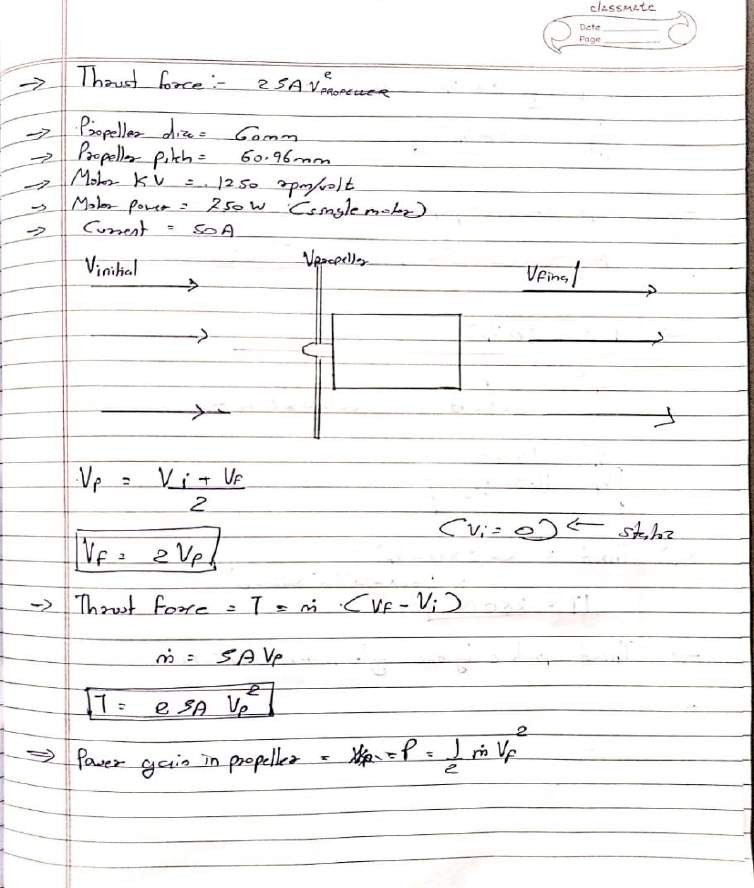 classmate
Date
Page
→ Thrust force :- 2 S A V²PROPELLER
→ Propeller dia = 60mm
→ Propeller pitch = 60.96mm
→ Motor KV = 1250 rpm/volt
→ Motor power = 250 W (single motor)
→ Current = 50A
Vinitial Vpropeller Vfinal
Vp = Vi + VF / 2
(Vi = 0) ←
VF = 2 Vp
→ Thrust Force = T = ṁ · (VF - Vi)
ṁ = S A Vp
T = 2 S A Vp²
⇒ Power gain in propeller = P = 1/2 ṁ VF²